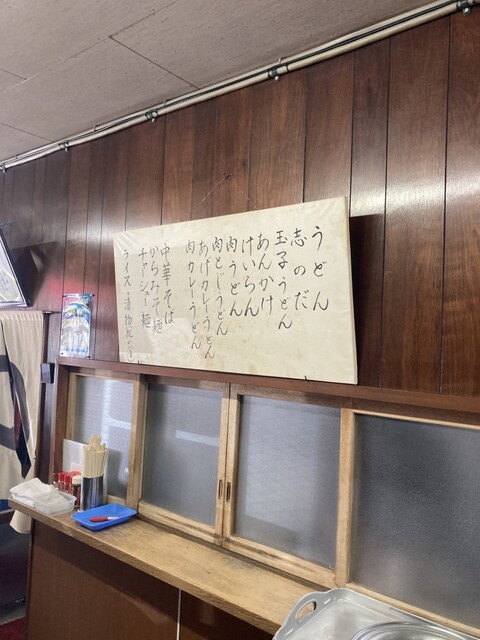 うどん
志のだ
玉子うどん
あんかけ
けいらん
肉うどん
肉とじうどん
あげカレーうどん
肉カレーうどん
中華そば
からみそ麺
チャーシュー麺
ライス